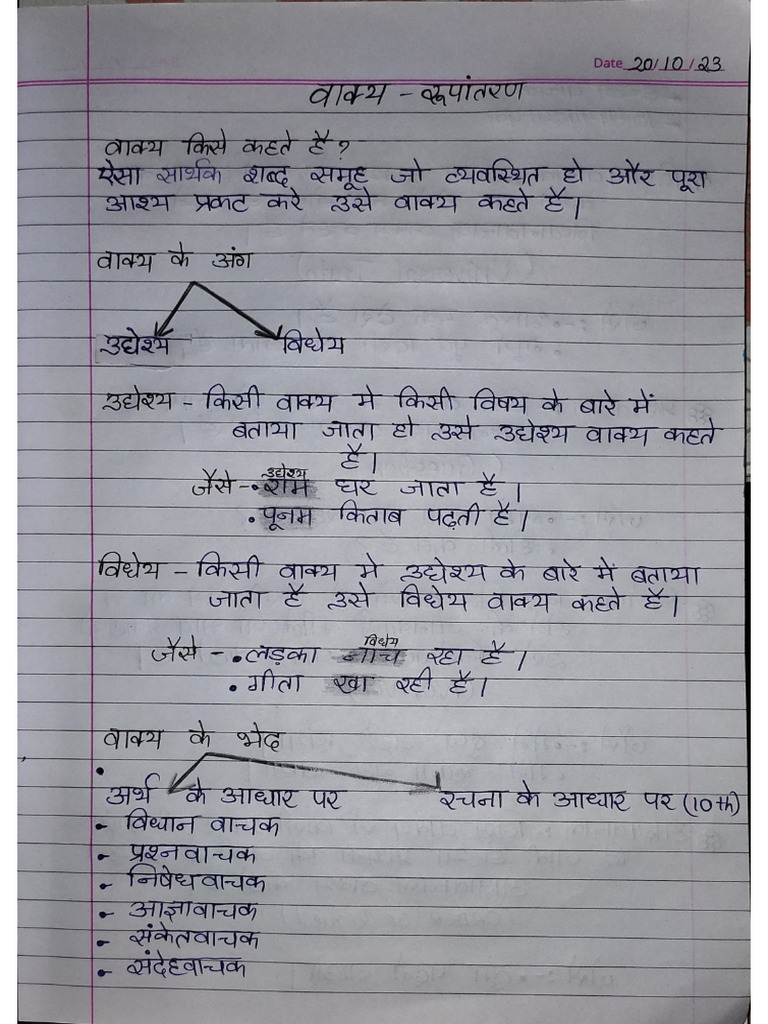 Date 20/10/23
वाक्य - रूपांतरण
वाक्य किसे कहते है?
ऐसा सार्थक शब्द समूह जो व्यवस्थित हो और पूरा
आश्य प्रकट करे उसे वाक्य कहते है।
वाक्य के अंग
उद्येश्य विधेय
उद्येश्य - किसी वाक्य मे किसी विषय के बारे में
बताया जाता हो उसे उद्येश्य वाक्य कहते
है।
उद्येश्य
जैसे - • राम घर जाता है।
• पूनम किताब पढ़ती है।
विधेय - किसी वाक्य मे उद्येश्य के बारे में बताया
जाता है उसे विधेय वाक्य कहते है।
विधेय
जैसे - • लड़का नाच रहा है।
• गीता खा रही है।
वाक्य के भेद
•
अर्थ के आधार पर रचना के आधार पर (10th)
- विधान वाचक
- प्रश्नवाचक
- निषेधवाचक
- आज्ञावाचक
- संकेतवाचक
- संदेहवाचक